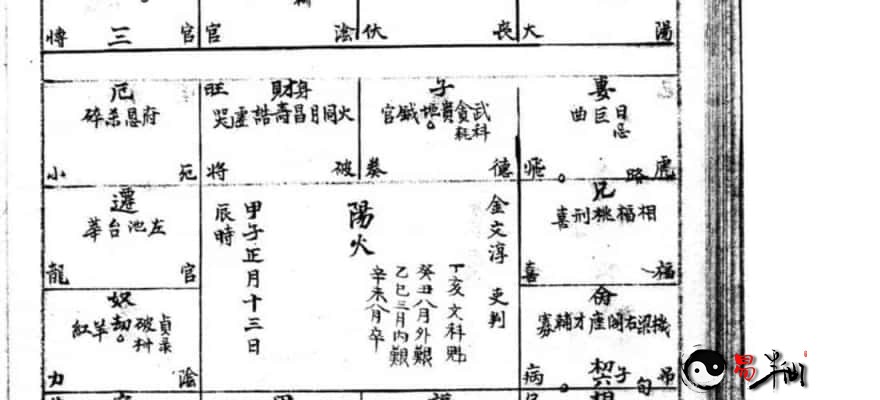 陽 大
喪 伏
陰 官
官 三 博
妻
日忌巨曲
虎 路 飛
子
武科貪耗貴壇鉞官
德 奏
身財 旺
火同月昌壽誥虛哭
破 將
厄
府恩杀碎
死 小
兄
相福桃刑喜
福 喜
金文淳 吏判
丁亥文科
癸丑八月外艱
乙巳三月內艱
辛未八月卒
陽火
甲子正月十三日
辰時
遷
左池台華
官 龍
命
機梁右閣座才輔寡
子
吊 旬 病
奴
貞祿破科劫羊紅
陰 力
易半仙